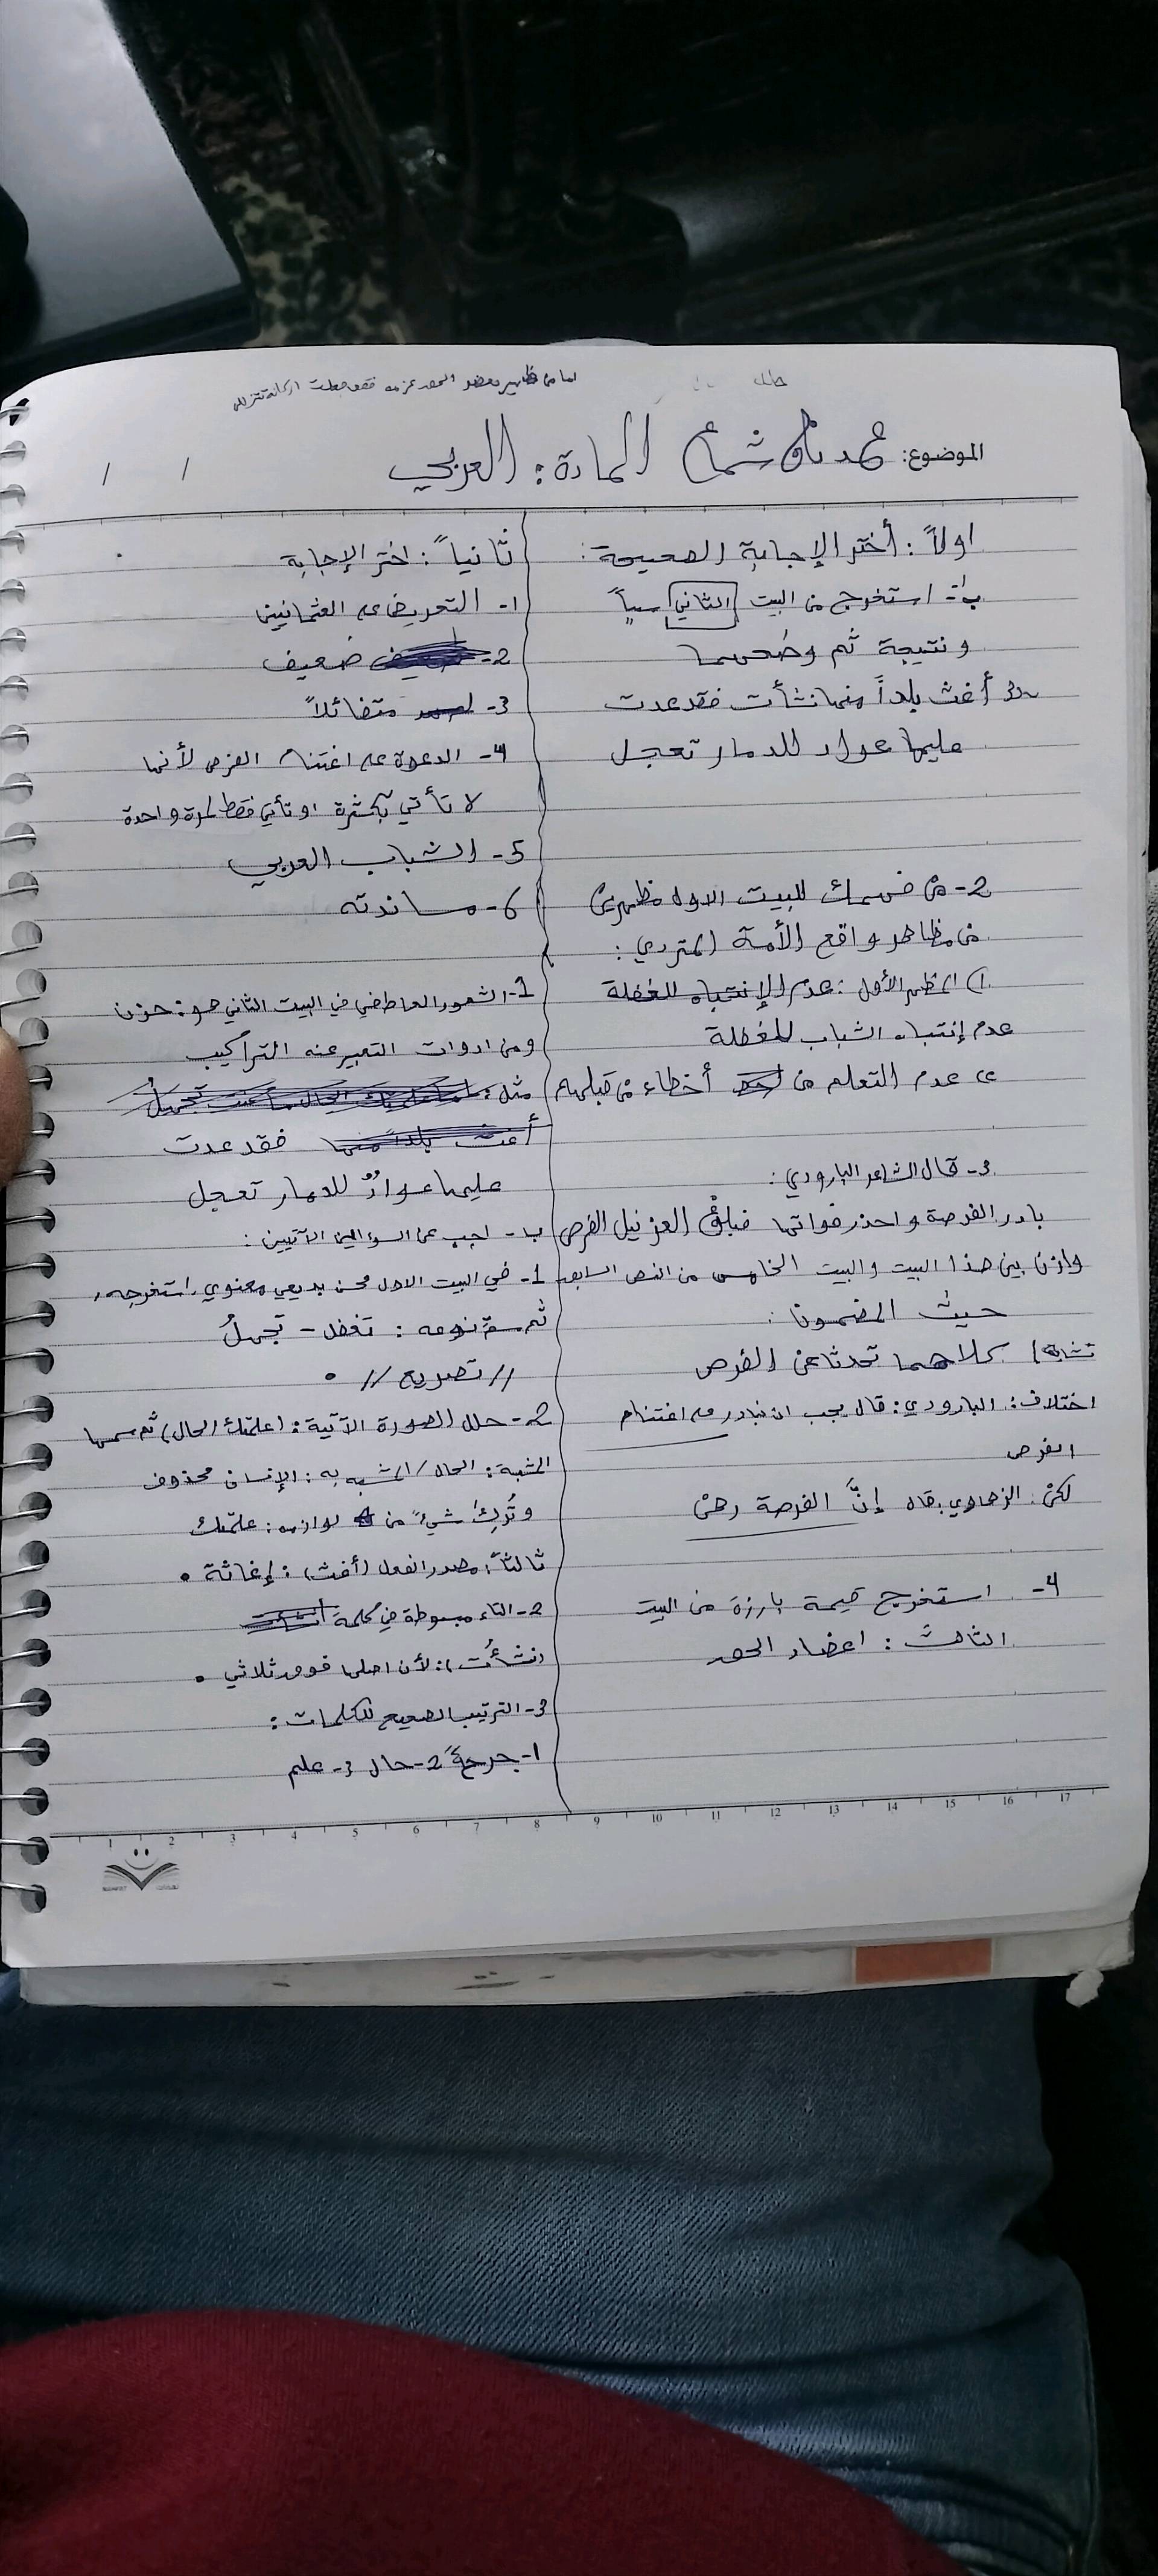 الموضوع: محمد شماع المادة: العربي
/ /
اولاً: أختر الإجابة الصحيحة:
ب- 1- استخرج من البيت الثاني سبباً
ونتيجة ثم وضحهما
أغث بلداً منها نشأت فقد عدت
عليها عواد للدمار تعجل
2- من فهمك للبيت الاول مظهرين
من مظاهر واقع الأمة المتردي:
1) المظهر الأول: عدم الإنتباه للغفلة
عدم إنتباه الشباب للغفلة
2) عدم التعلم من أخطاء من قبلهم
3- قال الشاعر البارودي:
بادر الفرصة واحذر فواتها فبلوغ العز نيل الفرص
وازن بين هذا البيت والبيت الخامس من النص السابق
حيث المضمون:
تشابه) كلاهما تحدثا عن الفرص
اختلاف: البارودي: قال يجب ان نبادر في اغتنام
الفرص
لكن: الزهاوي: قال إنَّ الفرصة رهن
4- استخرج قيمة بارزة من البيت
الثالث:
ثانياً: اختر الإجابة
1- التعريض على العثمانيين
2- ضعيف
3- متفائلاً
4- الدعوة على اغتنام الفرص لأنها
لا تأتي بكثرة او تأتي فقط لمرة واحدة
5- الشباب العربي
6- مساندته
1- الشعور العاطفي في البيت الثاني هو: حزن
ومن ادوات التعبير عنه التراكيب
مثل:
أغث بلداً منها فقد عدت
عليها عوادٌ للدمار تعجل
ب- اجب عن السؤالين الآتيين:
1- في البيت الاول محسن بديعي معنوي استخرجه,
ثم سمّ نوعه: تغفل - تجهلُ
// تصريع // .
2- حلل الصورة الآتية: (علمتك الحال) ثم سمها
المشبة: الحال / المشبه به: الإنسان محذوف
وتُرِكَ شيءً من لوازمه: علمتك
ثالثاً: مصدر الفعل (أغث): إغاثة .
2- التاء مبسوطة في كلمة
(نشأت): لأن اصلها فوق ثلاثي .
3- الترتيب الصحيح للكلمات:
1- جرحةً 2- حال 3- علم
1 2 3 4 5 6 7 8 9 10 11 12 13 14 15 16 17